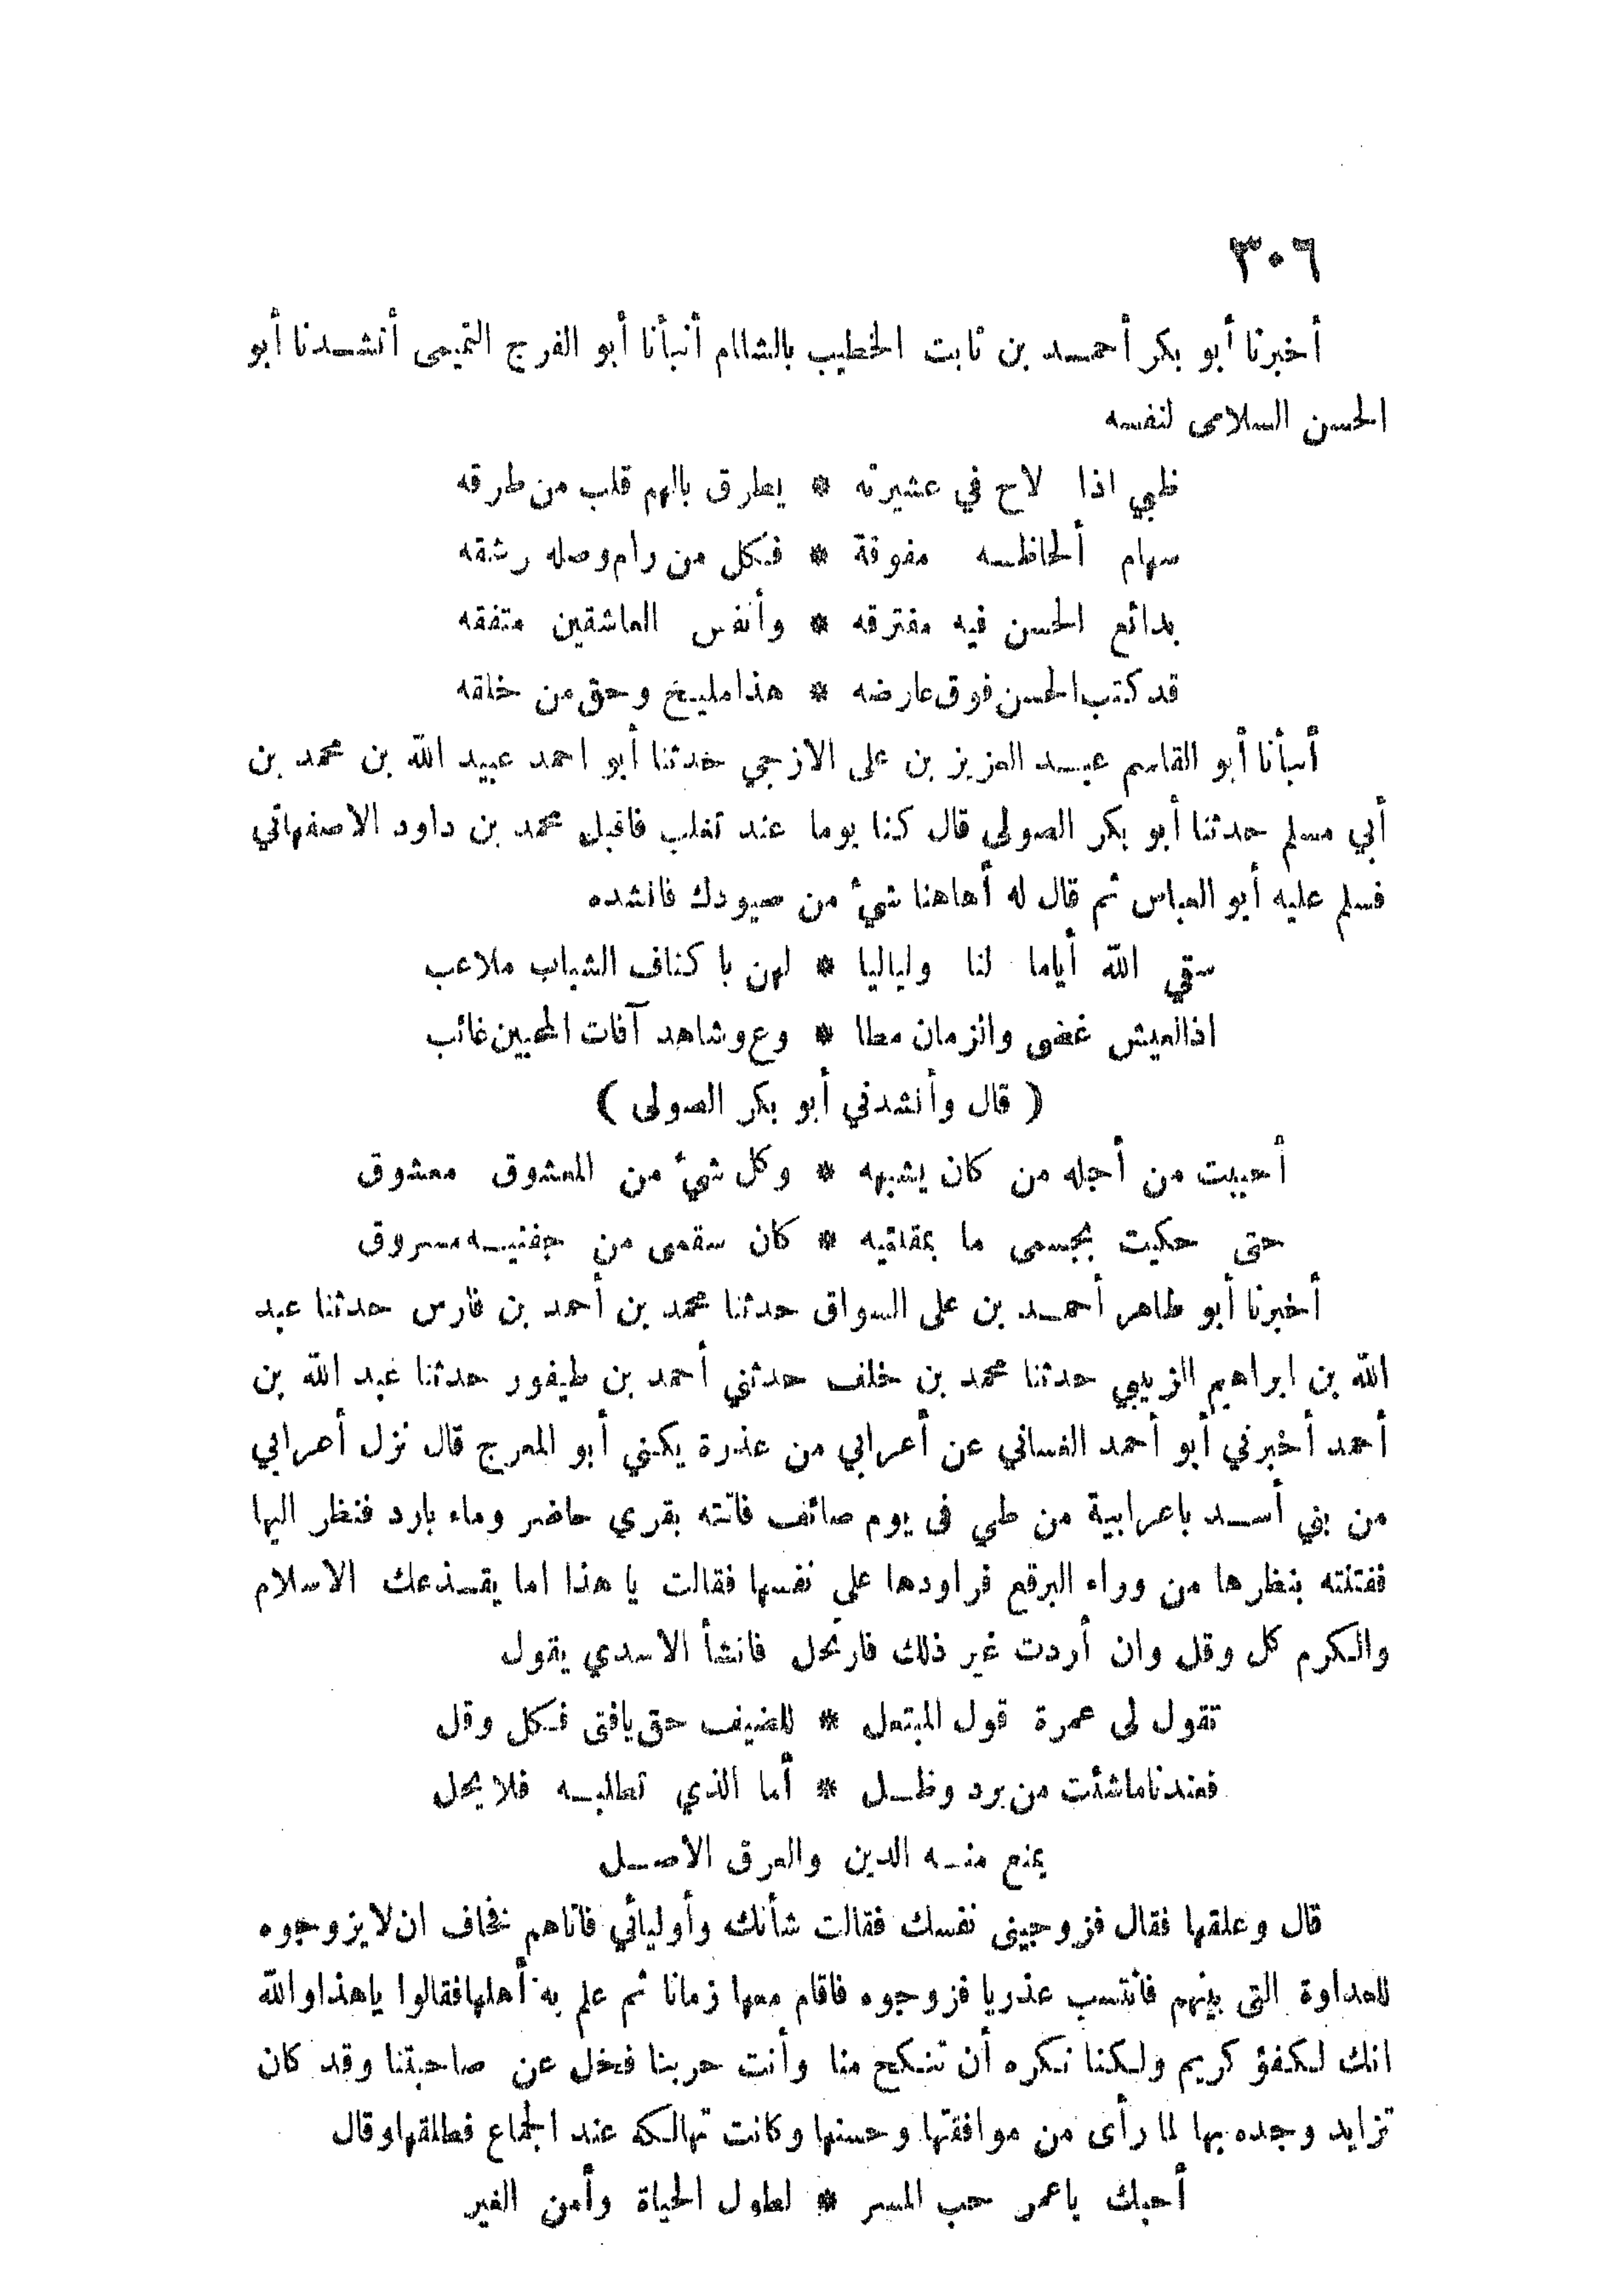 ٣٠٦
أخبرنا أبو بكر أحمد بن ثابت الخطيب بالشام أنبأنا أبو الفرج التميمى أنشدنا أبو
الحسن السلامى لنفسه
ظبي اذا لاح في عشيرته * يطرق بالهم قلب من طرقه
سهام ألحاظه مفوقة * فكل من رام وصله رشقه
بدائع الحسن فيه مفترقه * وأنفس العاشقين متفقه
قد كتب الحسن فوق عارضه * هذا مليح وحق من خلقه
أنبأنا أبو القاسم عبد العزيز بن على الازجي حدثنا أبو احمد عبيد الله بن محمد بن
أبي مسلم حدثنا أبو بكر الصولى قال كنا يوما عند ثعلب فاقبل محمد بن داود الاصفهاني
فسلم عليه أبو العباس ثم قال له أهاهنا شئ من صيودك فانشده
سقي الله أياما لنا ولياليا * لهن با كناف الشباب ملاعب
اذالعيش غض والزمان مطا * وع وشاهد آفات المحبين غائب
( قال وأنشدني أبو بكر الصولى )
أحببت من أجله من كان يشبهه * وكل شئ من المعشوق معشوق
حتى حكيت بجسمى ما بمقلتيه * كان سقمى من جفنيه مسروق
أخبرنا أبو طاهر أحمد بن على السواق حدثنا محمد بن أحمد بن فارس حدثنا عبد
الله بن ابراهيم الزبيبي حدثنا محمد بن خلف حدثني أحمد بن طيفور حدثنا عبد الله بن
أحمد أخبرني أبو أحمد الغساني عن أعرابي من عذرة يكني أبو المعرج قال نزل أعرابي
من بني أسد باعرابية من طي فى يوم صائف فاتته بقري حاضر وماء بارد فنظر اليها
ففتنته بنظرها من وراء البرقع فراودها على نفسها فقالت يا هذا اما يقذعك الاسلام
والكرم كل وقل وان أردت غير ذلك فارتحل فانشأ الاسدي يقول
تقول لى عمرة قول المبتعل * للضيف حق يافتى فكل وقل
فعندنا ماشئت من برد وظل * أما الذي تطلبه فلا يحل
يمنع منه الدين والعرق الاصل
قال وعلقها فقال فزوجينى نفسك فقالت شأنك وأوليائي فاتاهم فخاف ان لا يزوجوه
للعداوة التى بينهم فانتسب عذريا فزوجوه فاقام معها زمانا ثم علم به أهلها فقالوا ياهذا والله
انك لكفؤ كريم ولكنا نكره أن تنكح منا وأنت حربنا فخل عن صاحبتنا وقد كان
تزايد وجده بها لما رأى من موافقتها وحسنها وكانت تهالكه عند الجماع فطلقها وقال
أحبك ياعمر حب المسر * لطول الحياة وأمن الغير